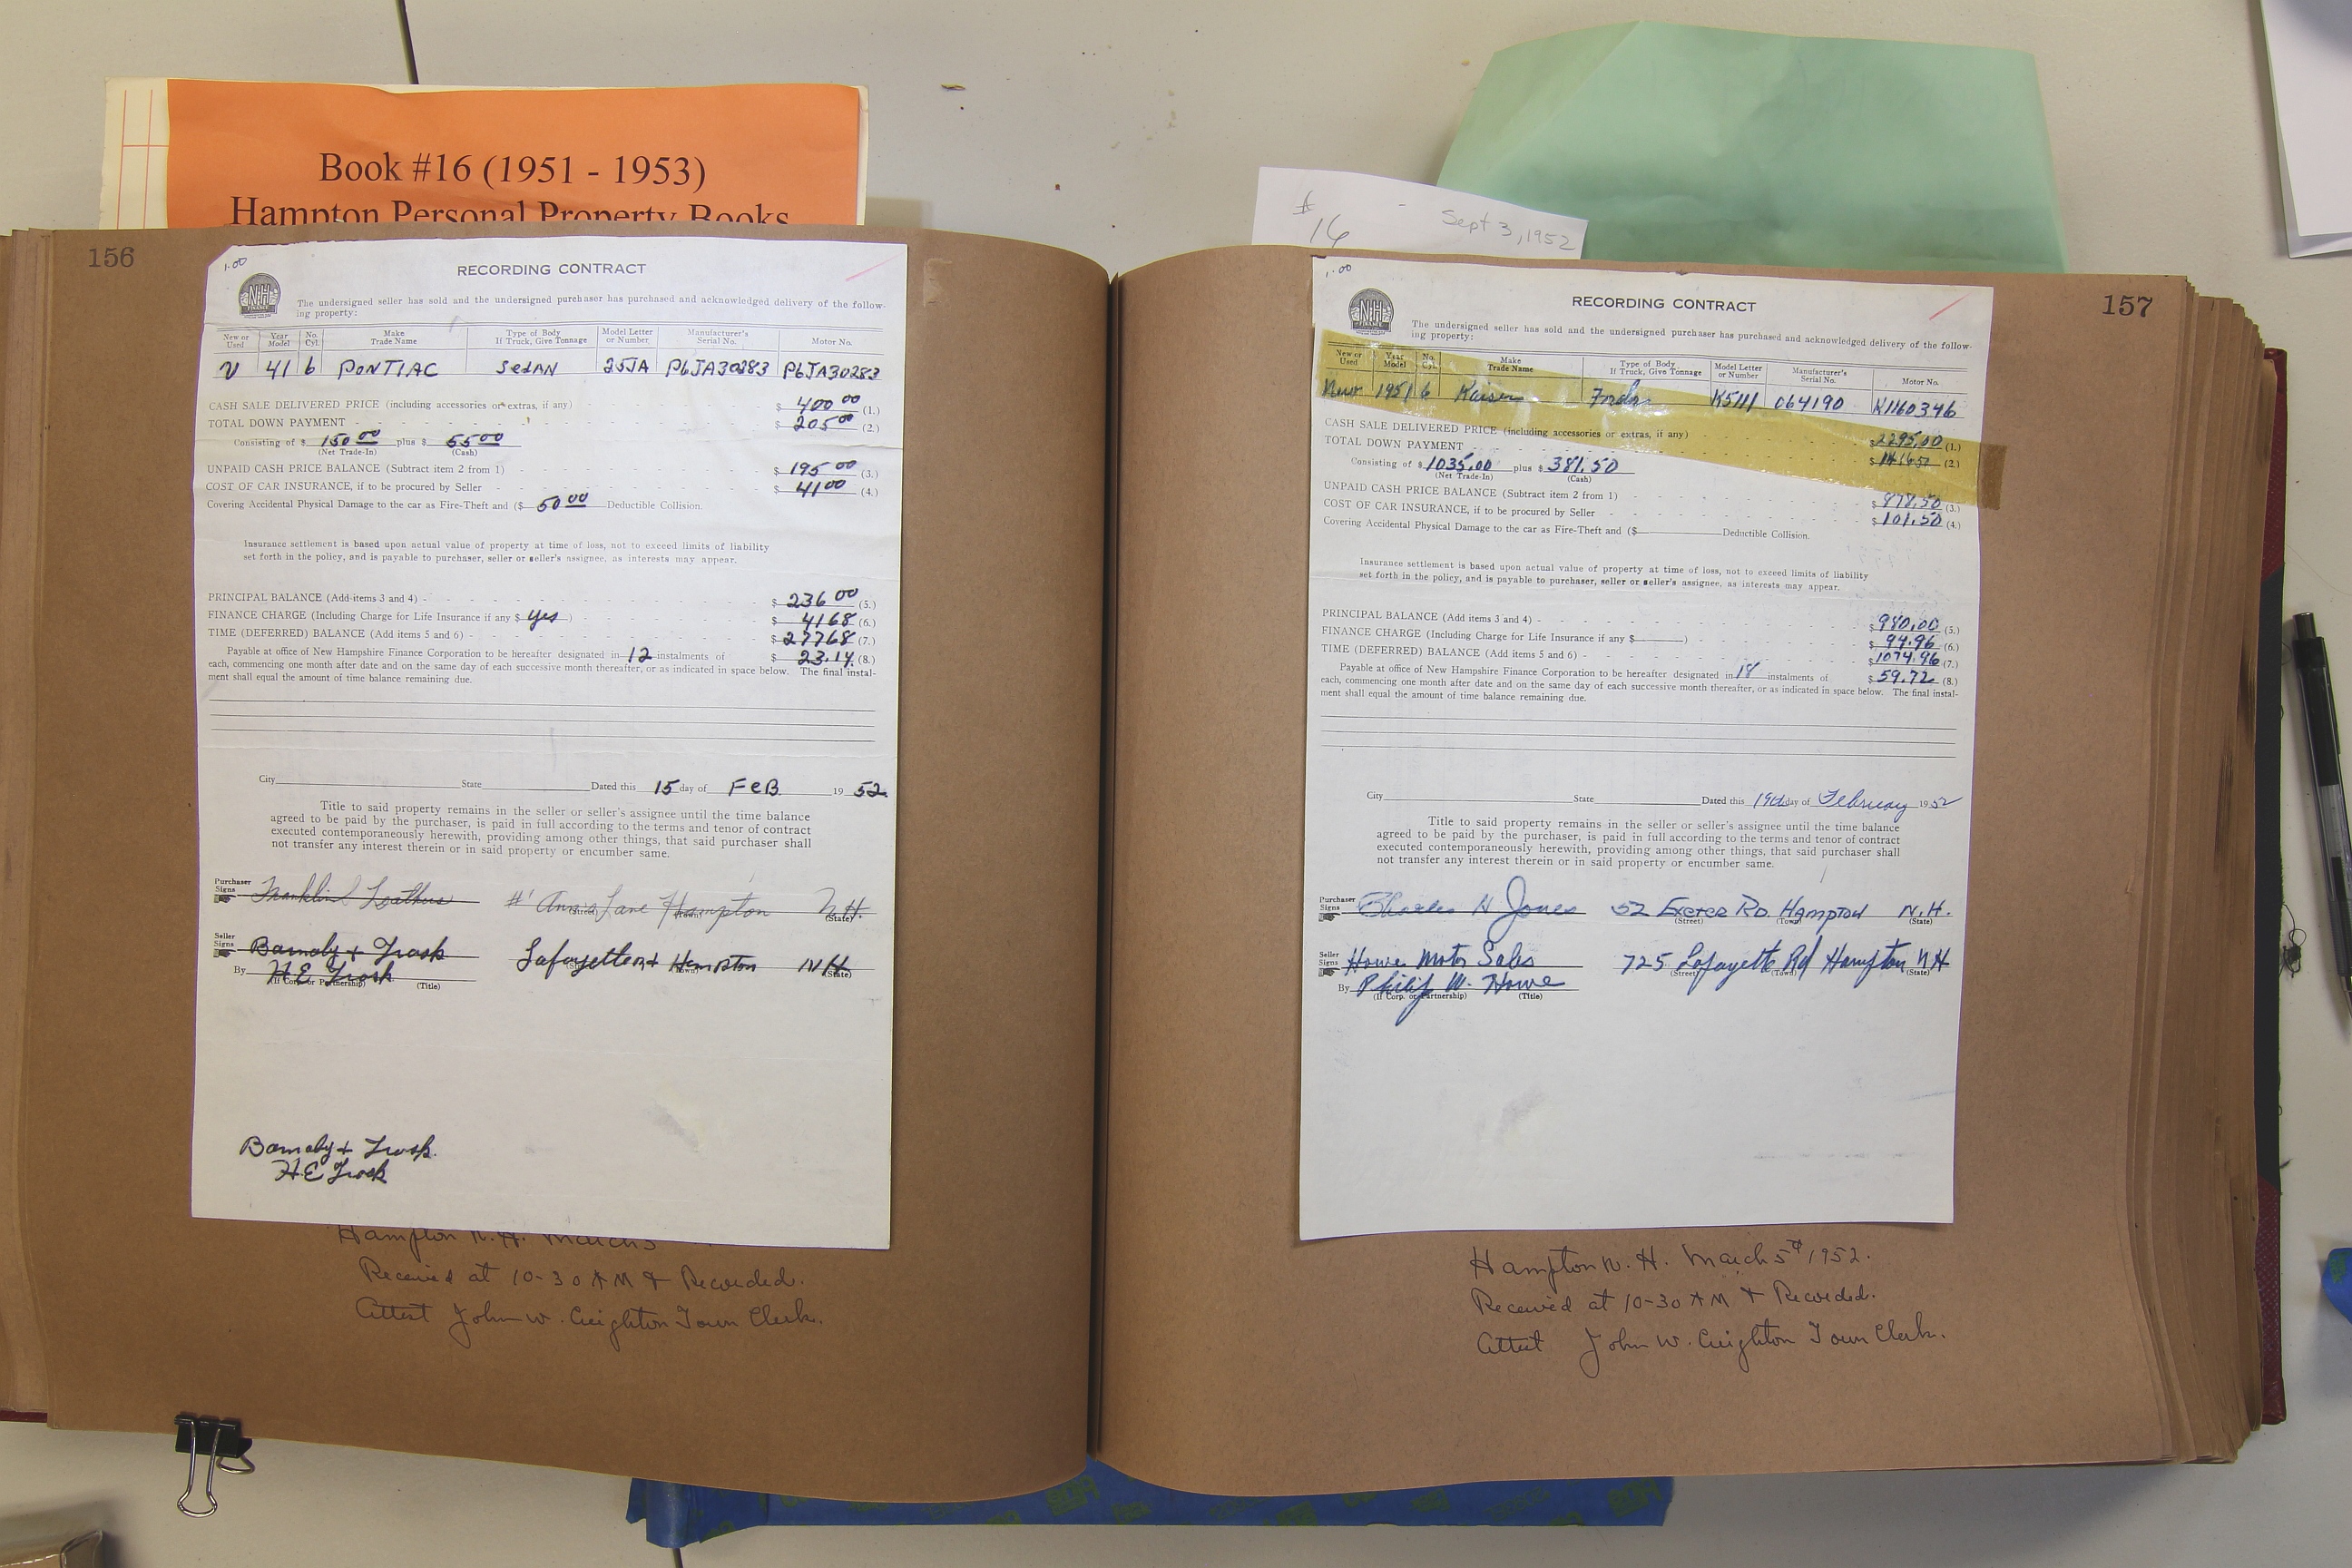 Book #16 (1951 - 1953)
Hampton Personal Property Books
# 16 - Sept 3, 1952
156
1.00
RECORDING CONTRACT
NH
FINANCE
The undersigned seller has sold and the undersigned purchaser has purchased and acknowledged delivery of the follow-
ing property:
New or Used Year Model No. Cyl. Make Trade Name Type of Body If Truck, Give Tonnage Model Letter or Number Manufacturer's Serial No. Motor No.
41 6 PONTIAC SedAN 25JA P6JA30283 P6JA30283
CASH SALE DELIVERED PRICE (including accessories or extras, if any) - $ 400 00 (1.)
TOTAL DOWN PAYMENT - $ 205 00 (2.)
Consisting of $ 150 00 plus $ 55 00
(Net Trade-In) (Cash)
UNPAID CASH PRICE BALANCE (Subtract item 2 from 1) - $ 195 00 (3.)
COST OF CAR INSURANCE, if to be procured by Seller - $ 41 00 (4.)
Covering Accidental Physical Damage to the car as Fire-Theft and ($ 50 00 Deductible Collision.
Insurance settlement is based upon actual value of property at time of loss, not to exceed limits of liability
set forth in the policy, and is payable to purchaser, seller or seller's assignee, as interests may appear.
PRINCIPAL BALANCE (Add items 3 and 4) - $ 236 00 (5.)
FINANCE CHARGE (Including Charge for Life Insurance if any $ yes ) $ 41 68 (6.)
TIME (DEFERRED) BALANCE (Add items 5 and 6) - $ 277 68 (7.)
Payable at office of New Hampshire Finance Corporation to be hereafter designated in 12 instalments of $ 23.14 (8.)
each, commencing one month after date and on the same day of each successive month thereafter, or as indicated in space below. The final instal-
ment shall equal the amount of time balance remaining due.
City State Dated this 15 day of FeB 19 52
Title to said property remains in the seller or seller's assignee until the time balance
agreed to be paid by the purchaser, is paid in full according to the terms and tenor of contract
executed contemporaneously herewith, providing among other things, that said purchaser shall
not transfer any interest therein or in said property or encumber same.
Purchaser Signs Franklin Leathers #1 Ann's Lane Hampton N.H.
(Street) (Town) (State)
Seller Signs Barnaby + Trask Lafayette Hampton NH
(Street) (Town) (State)
By H E Trask
(If Corp. or Partnership) (Title)
Barnaby + Trask.
H E Trask
Hampton N. H. March 5
Received at 10-30 AM & Recorded.
Attest John W. Creighton Town Clerk.
157
1.00
RECORDING CONTRACT
NH
FINANCE
The undersigned seller has sold and the undersigned purchaser has purchased and acknowledged delivery of the follow-
ing property:
New or Used Year Model No. Cyl. Make Trade Name Type of Body If Truck, Give Tonnage Model Letter or Number Manufacturer's Serial No. Motor No.
New 1951 6 Kaiser Fordor K5111 064190 K1160346
CASH SALE DELIVERED PRICE (including accessories or extras, if any) - $ 2295.00 (1.)
TOTAL DOWN PAYMENT - $ 1416.50 (2.)
Consisting of $ 1035.00 plus $ 381.50
(Net Trade-In) (Cash)
UNPAID CASH PRICE BALANCE (Subtract item 2 from 1) - $ 878.50 (3.)
COST OF CAR INSURANCE, if to be procured by Seller - $ 101.50 (4.)
Covering Accidental Physical Damage to the car as Fire-Theft and ($ Deductible Collision.
Insurance settlement is based upon actual value of property at time of loss, not to exceed limits of liability
set forth in the policy, and is payable to purchaser, seller or seller's assignee, as interests may appear.
PRINCIPAL BALANCE (Add items 3 and 4) - $ 980.00 (5.)
FINANCE CHARGE (Including Charge for Life Insurance if any $ ) $ 94.96 (6.)
TIME (DEFERRED) BALANCE (Add items 5 and 6) - $ 1074.96 (7.)
Payable at office of New Hampshire Finance Corporation to be hereafter designated in 18 instalments of $ 59.72 (8.)
each, commencing one month after date and on the same day of each successive month thereafter, or as indicated in space below. The final instal-
ment shall equal the amount of time balance remaining due.
City State Dated this 19th day of February 1952
Title to said property remains in the seller or seller's assignee until the time balance
agreed to be paid by the purchaser, is paid in full according to the terms and tenor of contract
executed contemporaneously herewith, providing among other things, that said purchaser shall
not transfer any interest therein or in said property or encumber same.
Purchaser Signs Charles H Jones 52 Exeter Rd. Hampton N.H.
(Street) (Town) (State)
Seller Signs Howe Motor Sales 725 Lafayette Rd Hampton NH
(Street) (Town) (State)
By Philip W. Howe
(If Corp. or Partnership) (Title)
Hampton N. H. March 5th 1952.
Received at 10-30 AM & Recorded.
Attest John W. Creighton Town Clerk.